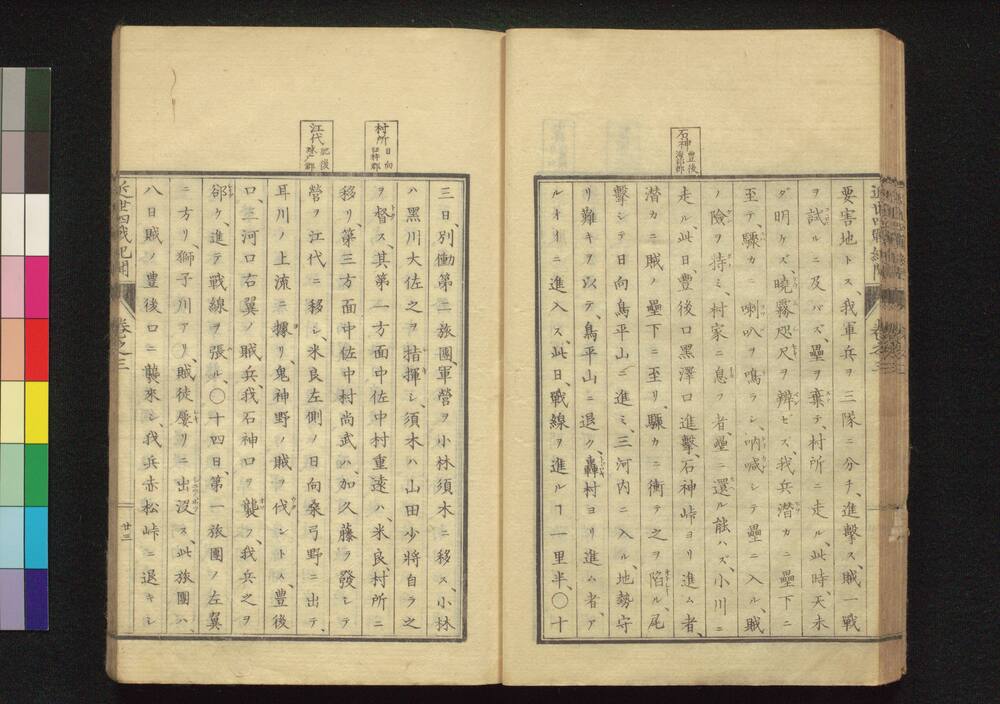 石神豊後海部郡
要害地トス、我軍兵ヲ三隊ニ分チ、進撃ス、賊一戰
ヲ試ルニ及バズ、壘ヲ棄テ、村所ニ走ル、此時、天未
ダ明ケズ、曉霧咫尺ヲ辨ゼズ、我兵潜カニ壘下ニ
至テ、驟カニ喇叭ヲ鳴ラシ、吶喊シテ壘ニ入ル、賊
ノ險ヲ恃ミ、村家ニ息フ者、壘ニ還ル能ハズ、小川ニ
走ル、此日、豊後口黒澤口進撃、石神峠ヨリ進ム者、
潜カニ賊ノ壘下ニ至リ、驟カニ衝テ之ヲ陷ル、尾
撃シテ日向鳥平山ニ進ミ、三河内ニ入ル、地勢守
リ難キヲ以テ、鳥平山ニ退ク、轟村ヨリ進ム者、ア
ルオイニ進入ス、此日、戰線ヲ進ルヿ一里半、〇十
村所日向
江代肥後球广郡
三日、別働第二旅團軍營ヲ小林須木ニ移ス、小林
ハ黒川大佐之ヲ指揮シ、須木ハ山田少將自ラ之
ヲ督ス、其第一方面中佐中村重遠ハ、米良村所ニ
移リ、第三方面中佐中村尚武ハ、加久藤ヲ發シテ
營ヲ江代ニ移シ、米良左側ノ日向桑弓野ニ出テ、
耳川ノ上流ニ據リ、鬼神野ノ賊ヲ伐ントス、豊後
口、三河口右翼ノ賊兵、我石神口ヲ襲フ、我兵之ヲ
郤ケ、進テ戰線ヲ張ル、〇十四日、第一旅團ノ左翼
ニ方リ、獅子川アリ、賊徒屢リニ出沒ス、此旅團ハ、
八日賊ノ豊後口ニ襲來シ、我兵赤松峠ニ退キシ
卷之三
廿三